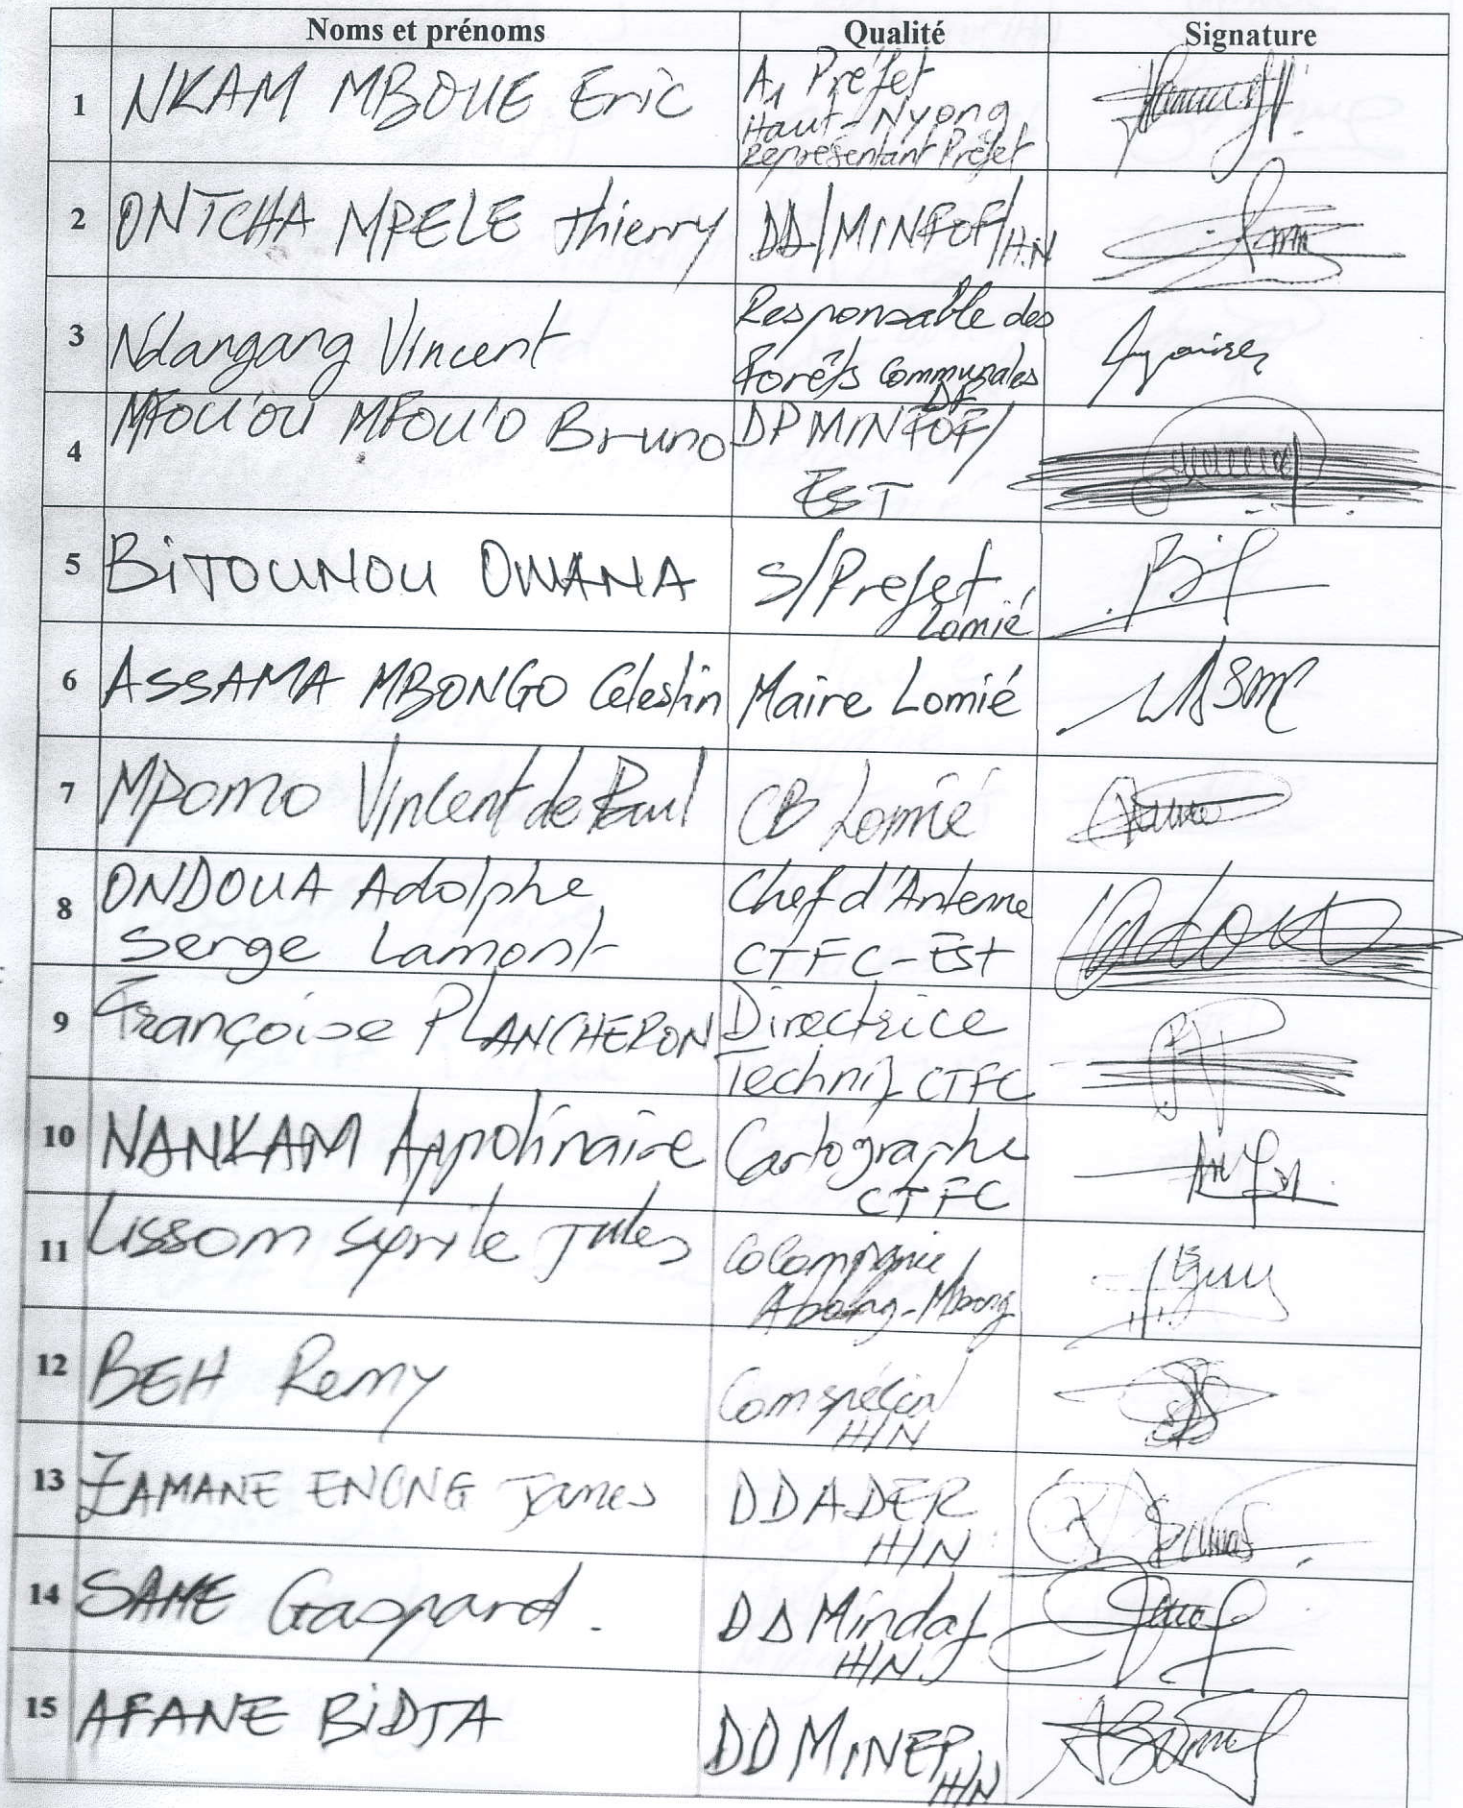 Noms et prénoms Qualité Signature
1 NKAM MBOUE Eric A1 Préfet
Haut-Nyong
Représentant Préfet
2 ONTCHA MPELE thierry DD/MINFOF/H.N
3 Ndangang Vincent Responsable des
Forêts Communales
4 MFOU'OU MFOU'O Bruno DPMINFOF/
EST
5 BiTOUNOU OWANA S/Prefet
Lomié
6 ASSAMA MBONGO Célestin Maire Lomié
7 MPOMO Vincent de Paul CB Lomié
8 ONDOUA Adolphe Chef d'Antenne
Serge Lamont CTFC-Est
9 Françoise PLANCHERON Directrice
Techniq CTFC
10 NANKAM Appolinaire Cartographe
CTFC
11 Lissom Jules
Abong-Mbang
12 BEH Remy Comspécial
H/N
13 ZAMANE ENONG James DDADER
H/N
14 SAME Gaspard. DD Mindaf
H/N
15 AFANE BiDJA DDMINEP
H/N